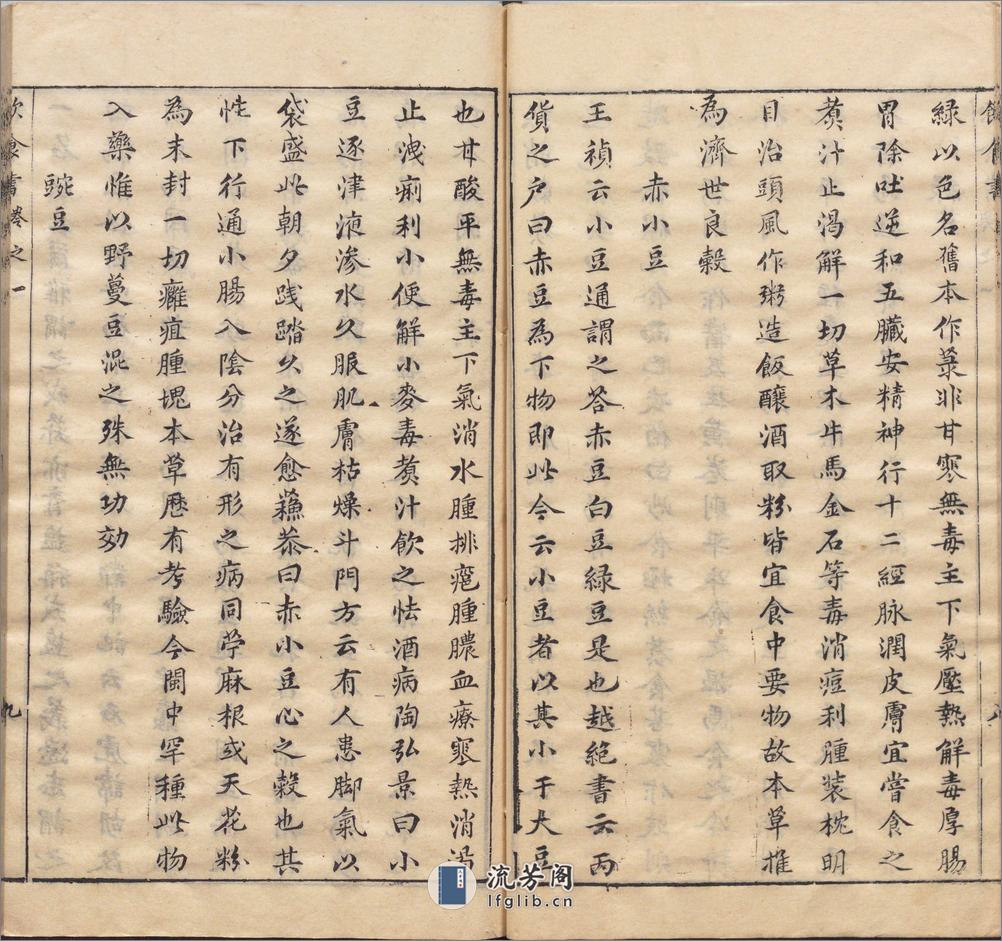 綠以色名舊本作菉非甘寒無毒主下氣壓熱解毒厚腸
胃除吐逆和五臟安精神行十二經脉潤皮膚宜嘗食之
煑汁止渴解一切草木牛馬金石等毒消痘利腫裝枕明
目治頭風作粥造飯釀酒取粉皆宜食中要物故本草推
為濟世良穀
赤小豆
王禎云小豆通謂之荅赤豆白豆綠豆是也越絕書云丙
貨之户曰赤豆為下物即此今云小豆者以其小于大豆
也甘酸平無毒主下氣消水腫排癰腫膿血療寒熱消渴
止洩痢利小便解小麥毒煑汁飲之怯酒病陶弘景曰小
豆逐津液滲水久服肌膚枯燥斗門方云有人患脚氣以
袋盛此朝夕踐踏久之遂愈蘓恭曰赤小豆心之榖也其
性下行通小腸入陰分治有形之病同苧麻根或天花粉
為末封一切癰疽腫塊本草歷有考驗今閩中罕種此物
入藥惟以野蔓豆混之殊無功効
豌豆
飲食書卷之一
九
流芳阁
lfglib.cn